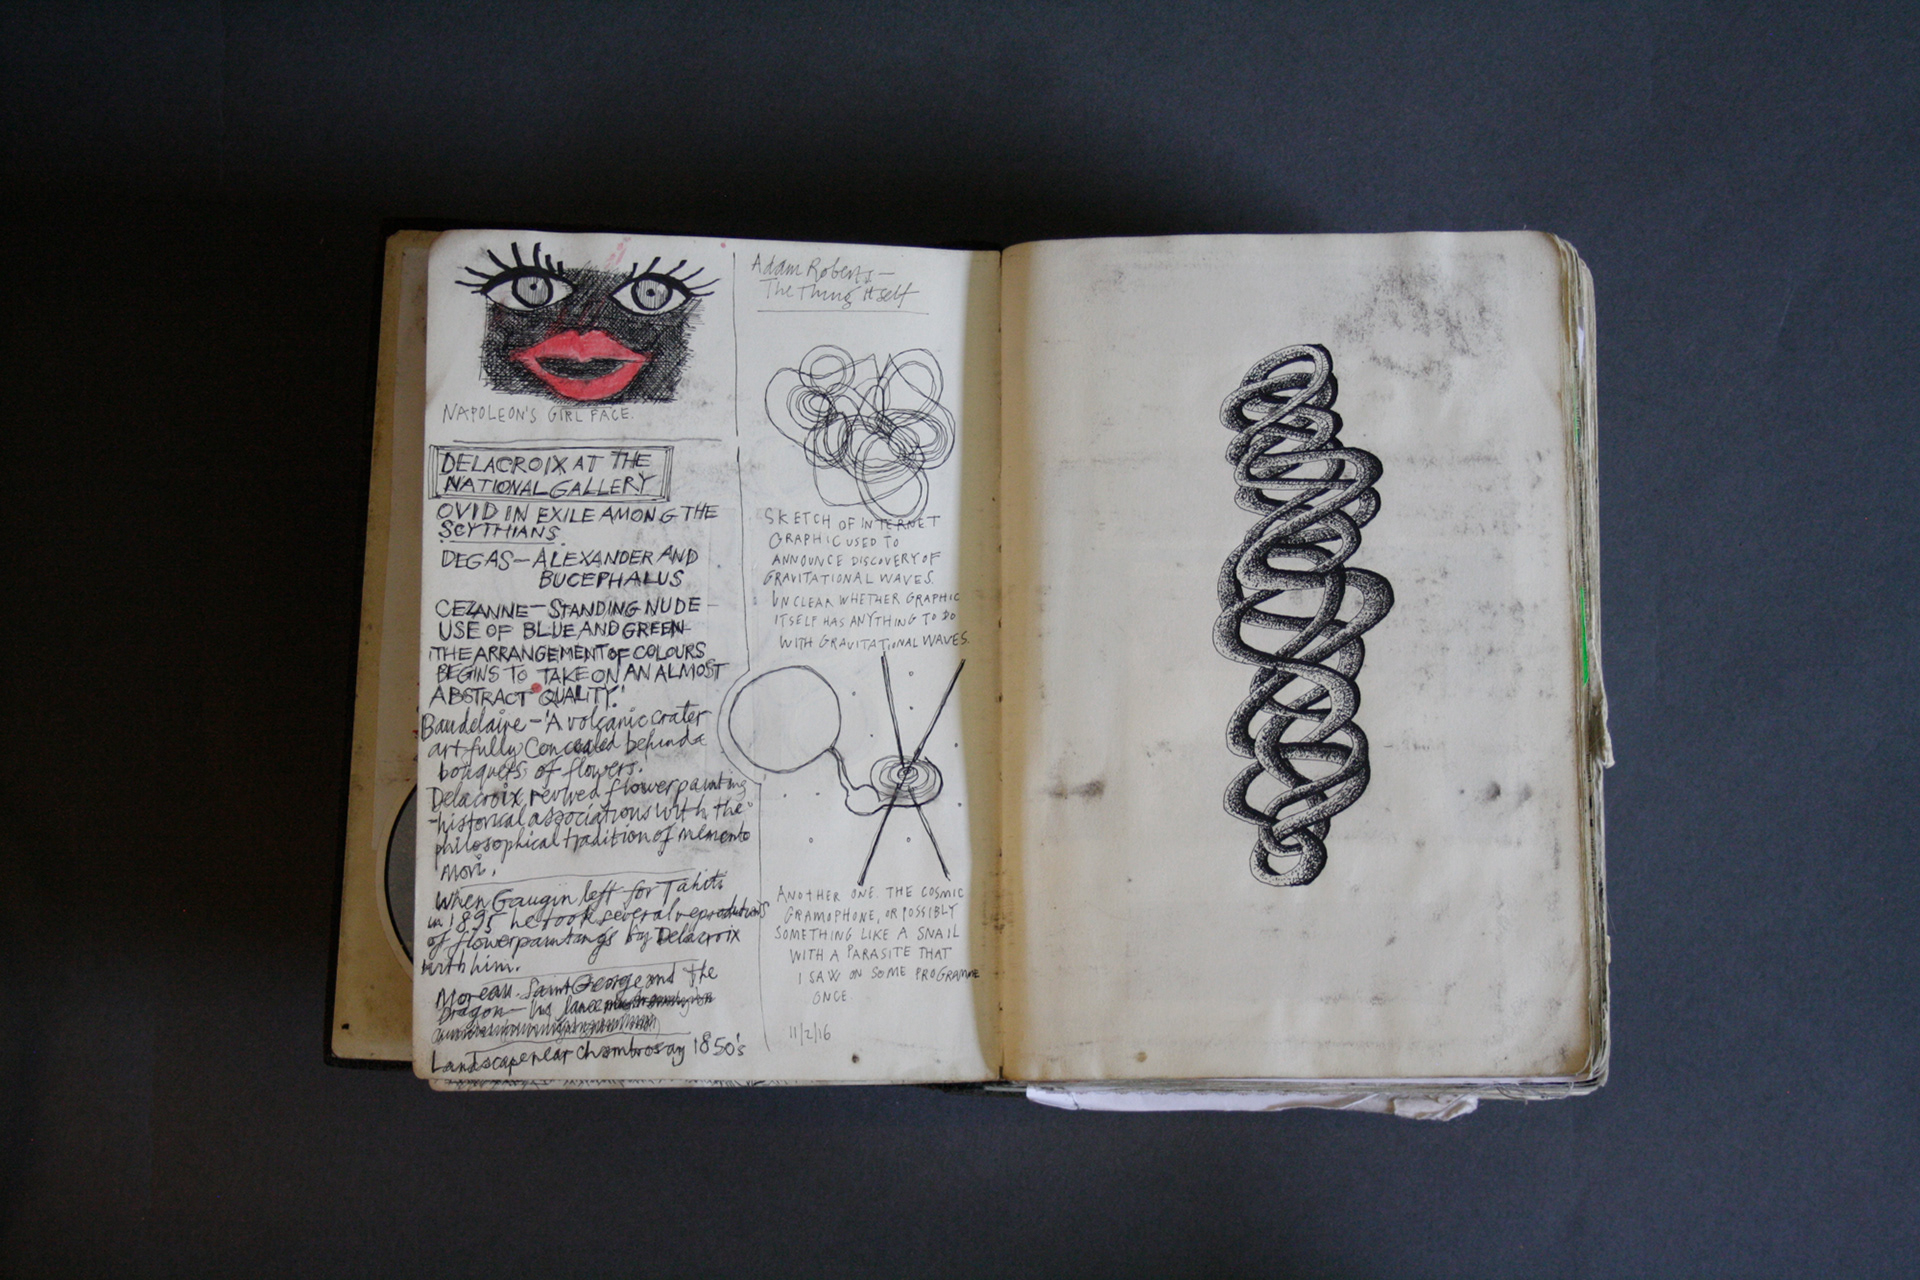 NAPOLEON'S GIRL FACE.
DELACROIX AT THE
NATIONAL GALLERY
OVID IN EXILE AMONG THE
SCYTHIANS.
DEGAS – ALEXANDER AND
BUCEPHALUS
CEZANNE – STANDING NUDE –
USE OF BLUE AND GREEN –
'THE ARRANGEMENT OF COLOURS
BEGINS TO TAKE ON AN ALMOST
ABSTRACT QUALITY.'
Baudelaire – 'A volcanic crater
artfully concealed behind a
bouquets of flowers.'
Delacroix revived flowerpainting
– historical associations with the
philosophical tradition of memento
mori.
When Gaugin left for Tahiti
in 1895 he took several reproductions
of flowerpaintings by Delacroix
with him.
Moreau. Saint George and the
Dragon – his lance
Landscape near chambrosay 1850's
Adam Roberts –
The Thing Itself
SKETCH OF INTERNET
GRAPHIC USED TO
ANNOUNCE DISCOVERY OF
GRAVITATIONAL WAVES.
UNCLEAR WHETHER GRAPHIC
ITSELF HAS ANYTHING TO DO
WITH GRAVITATIONAL WAVES.
ANOTHER ONE. THE COSMIC
GRAMOPHONE, OR POSSIBLY
SOMETHING LIKE A SNAIL
WITH A PARASITE THAT
I SAW ON SOME PROGRAMME
ONCE.
11/2/16